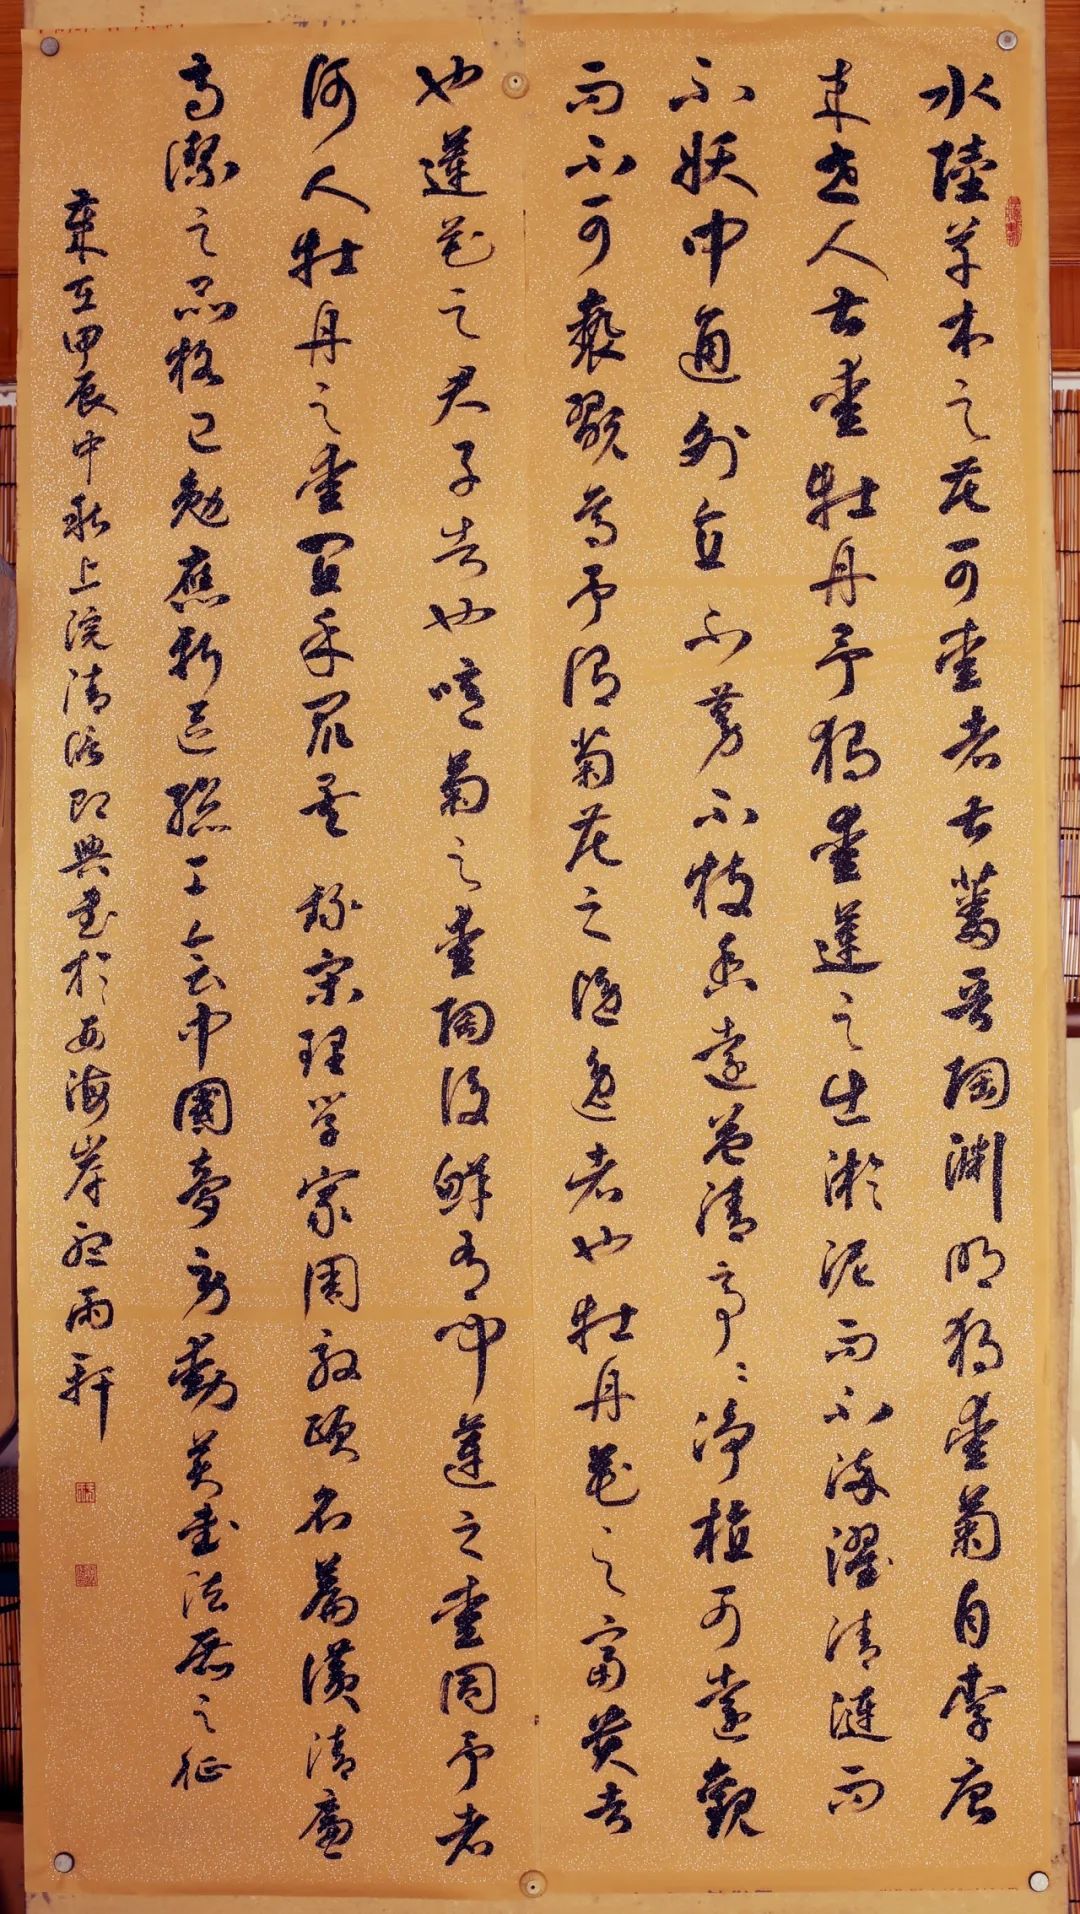 水陸草木之花可愛者甚蕃晉陶淵明獨愛菊自李唐
来世人甚愛牡丹予獨愛蓮之出淤泥而不染濯清漣而
不妖中通外直不蔓不枝香遠益清亭〻淨植可遠觀
而不可褻翫焉予謂菊花之隱逸者也牡丹花之富貴者
也蓮花之君子者也噫菊之愛陶後鮮有聞蓮之愛同予者
何人牡丹之愛宜乎眾矣 録宋理學家周敦頤名篇讚清廉
高潔之品格已勉應新區總工会中國夢勞動美書法展之征
歲在甲辰中秋上浣清即興書於西海岸聽雨軒